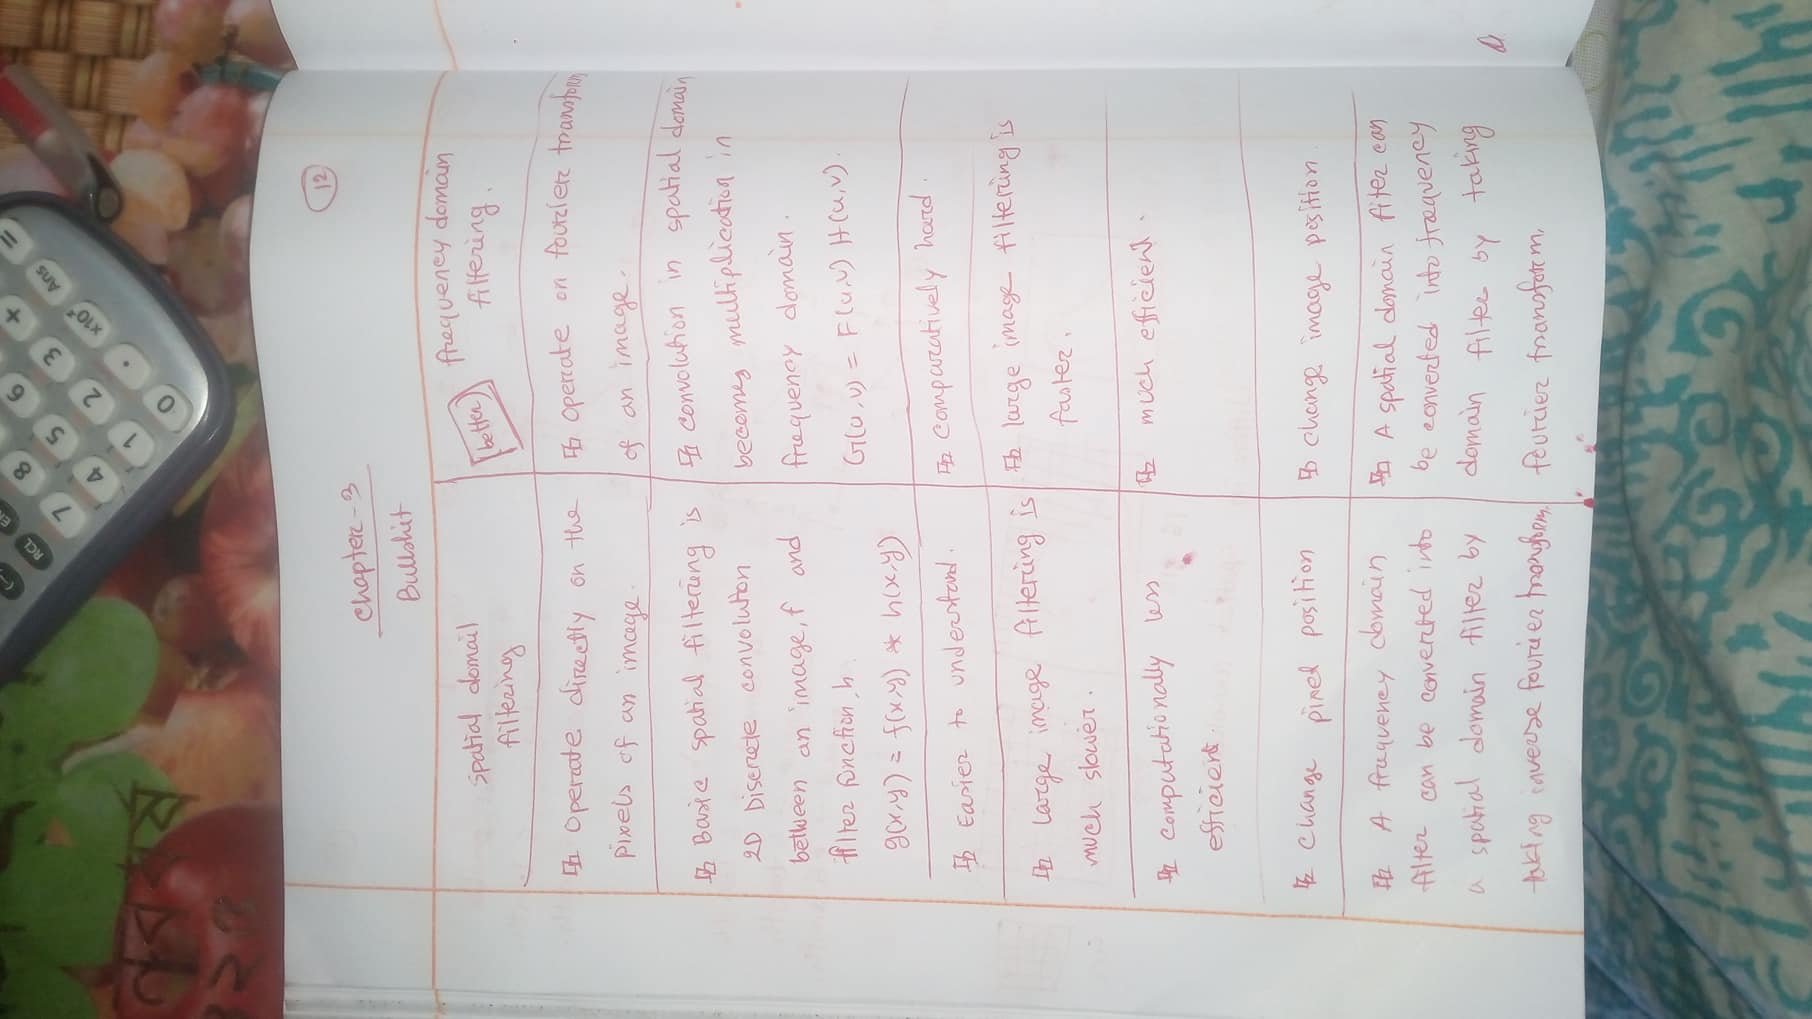 (-)
RCL
7
8
4
5
6
+
=
1
2
3
Ans
0
.
×10ˣ
নববর্ষ
12
Chapter-3
Bullshit
spatial domail
filtering
better
frequency domain
filtering.
Operate directly on the
pixels of an image.
operate on fourier transform
of an image.
Basic spatial filtering is
2D Discrete convolution
between an image, f and
filter function, h
g(x,y) = f(x,y) * h(x,y)
convolution in spatial domain
becomes multiplication in
frequency domain.
G(u,v) = F(u,v) H(u,v).
Easier to understand.
comparatively hard.
Large image filtering is
much slower.
large image filtering is
faster.
computationally less
efficient.
much efficient.
change pixel position
change image position
A frequency domain
filter can be converted into
a spatial domain filter by
taking inverse fourier transform.
A spatial domain fiter can
be converted into frequency
domain filter by taking
fourier transform.